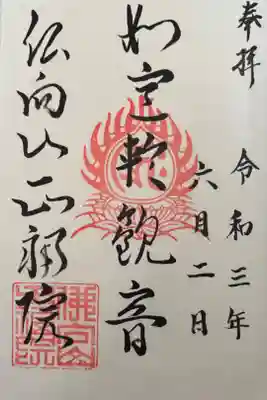 奉拝 令和三年
六月二日
如意輪観音
仏向山正福院